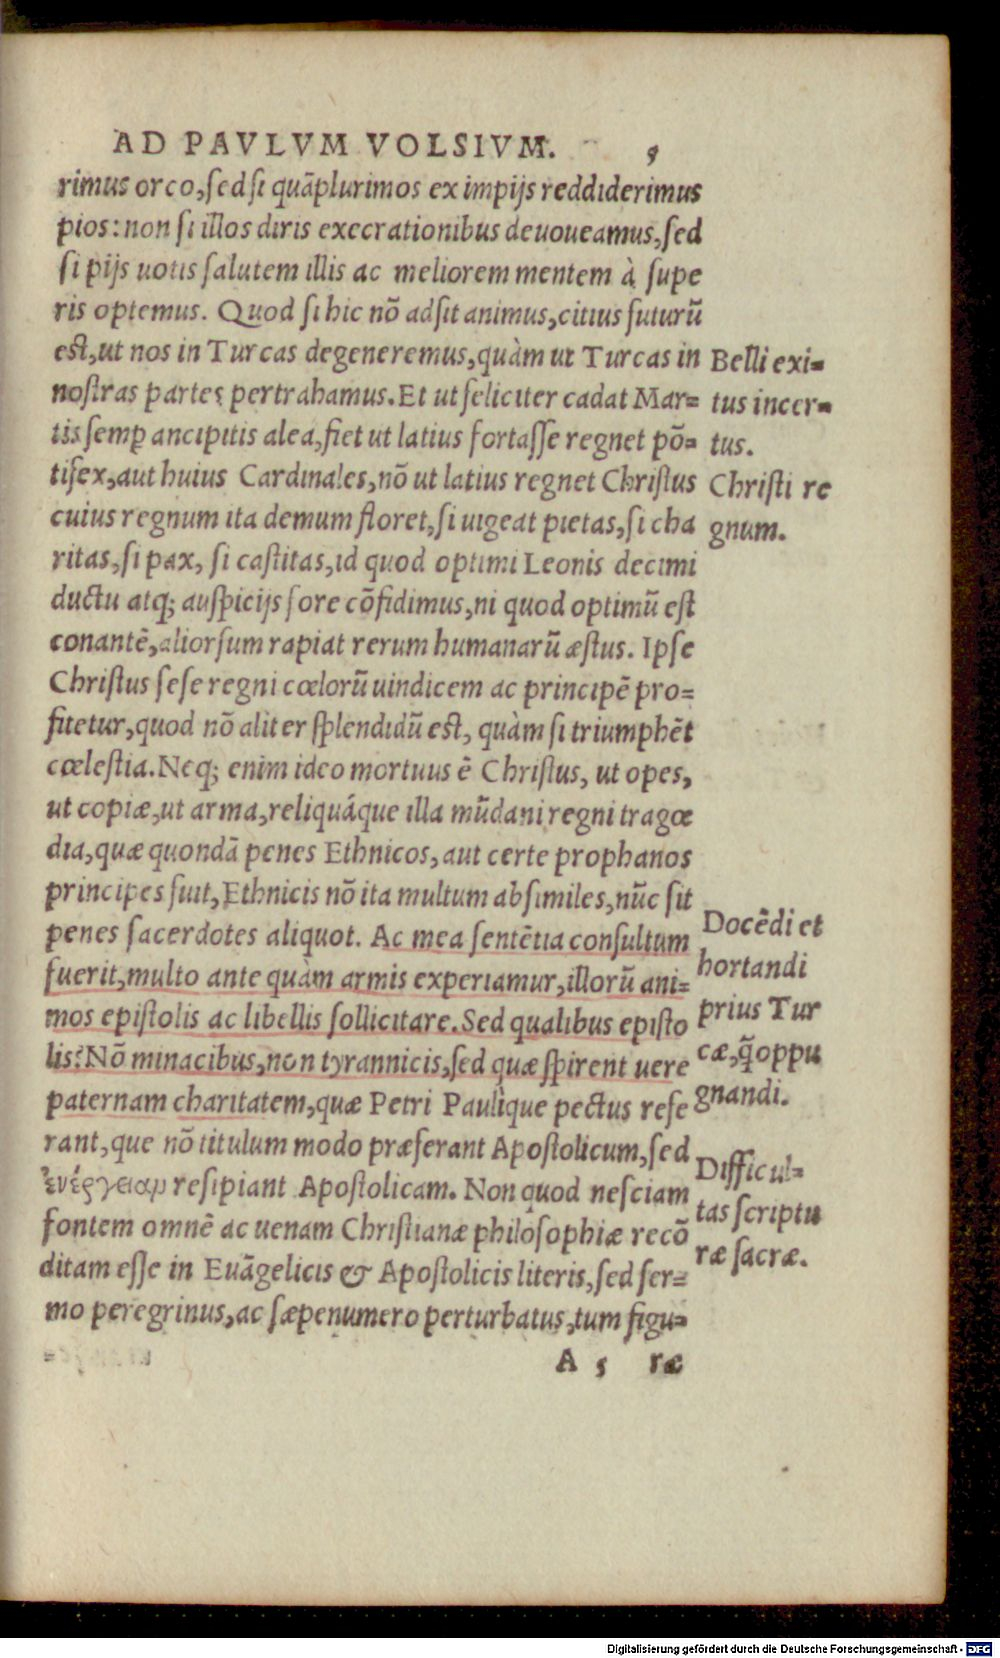 AD PAVLVM VOLSIVM. 5
rimus orco, sed si quāplurimos ex impijs reddiderimus
pios: non si illos diris execrationibus deuoueamus, sed
si pijs uotis salutem illis ac meliorem mentem à supe
ris optemus. Quod si hic nō adsit animus, citius futurū
est, ut nos in Turcas degeneremus, quàm ut Turcas in
nostras partes pertrahamus. Et ut feliciter cadat Mar=
tis semp ancipitis alea, fiet ut latius fortasse regnet pō=
tifex, aut huius Cardinales, nō ut latius regnet Christus
cuius regnum ita demum floret, si uigeat pietas, si cha
ritas, si pax, si castitas, id quod optimi Leonis decimi
ductu atq; auspicijs fore cōfidimus, ni quod optimū est
conantē, aliorsum rapiat rerum humanarū æstus. Ipse
Christus sese regni cœlorū uindicem ac principē pro=
fitetur, quod nō aliter splendidū est, quàm si triumphēt
cœlestia. Neq; enim ideo mortuus ē Christus, ut opes,
ut copiæ, ut arma, reliquáque illa mūdani regni tragœ
dia, quæ quondā penes Ethnicos, aut certe prophanos
principes fuit, Ethnicis nō ita multum absimiles, nūc sit
penes sacerdotes aliquot. Ac mea sentētia consultum
fuerit, multo ante quàm armis experiamur, illorū ani=
mos epistolis ac libellis sollicitare. Sed qualibus episto
lis? Nō minacibus, non tyrannicis, sed quæ spirent uere
paternam charitatem, quæ Petri Paulique pectus refe
rant, que nō titulum modo præferant Apostolicum, sed
ἐνέργειαν resipiant Apostolicam. Non quod nesciam
fontem omnē ac uenam Christianæ philosophiæ recō
ditam esse in Euāgelicis & Apostolicis literis, sed ser=
mo peregrinus, ac sæpenumero perturbatus, tum figu=
A 5 ræ
Belli exi=
tus incer=
tus.
Christi re
gnum.
Docēdi et
hortandi
prius Tur
cæ, q̄ oppu
gnandi.
Difficul=
tas scriptu
ræ sacræ.
Digitalisierung gefördert durch die Deutsche Forschungsgemeinschaft - DFG